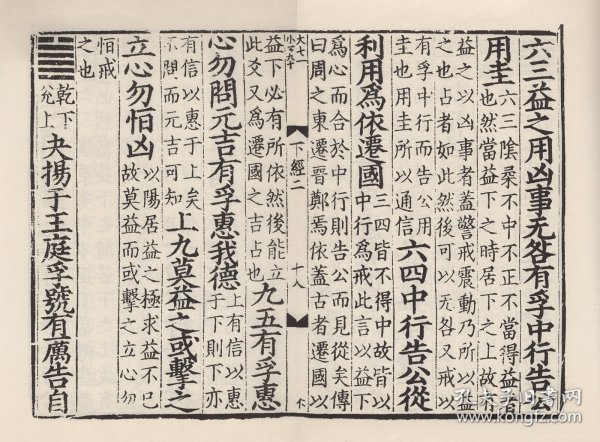 六三益之用凶事无咎有孚中行告公
用圭
六三陰柔不中不正不當得益者
也然當益下之時居下之上故有
益之以凶事者蓋警戒震動乃所以益
之也占者如此然後可以无咎又戒以
有孚中行而告公用
圭也用圭所以通信
六四中行告公從
利用爲依遷國
三四皆不得中故皆以
中行爲戒此言以益下
爲心而合於中行則告公而見從矣傳
曰周之東遷晉鄭焉依蓋古者遷國以
下經二
十八
木
益下必有所依然後能立
此爻又爲遷國之吉占也
九五有孚惠
心勿問元吉有孚惠我德
上有信以惠
于下則下亦
有信以惠于上矣
不問而元吉可知
上九莫益之或擊之
立心勿恒凶
以陽居益之極求益不已
故莫益而或擊之立心勿
恒戒
之也
乾下
兌上
夬揚于王庭孚號有厲告自
孔夫子旧书网
kongfz.com